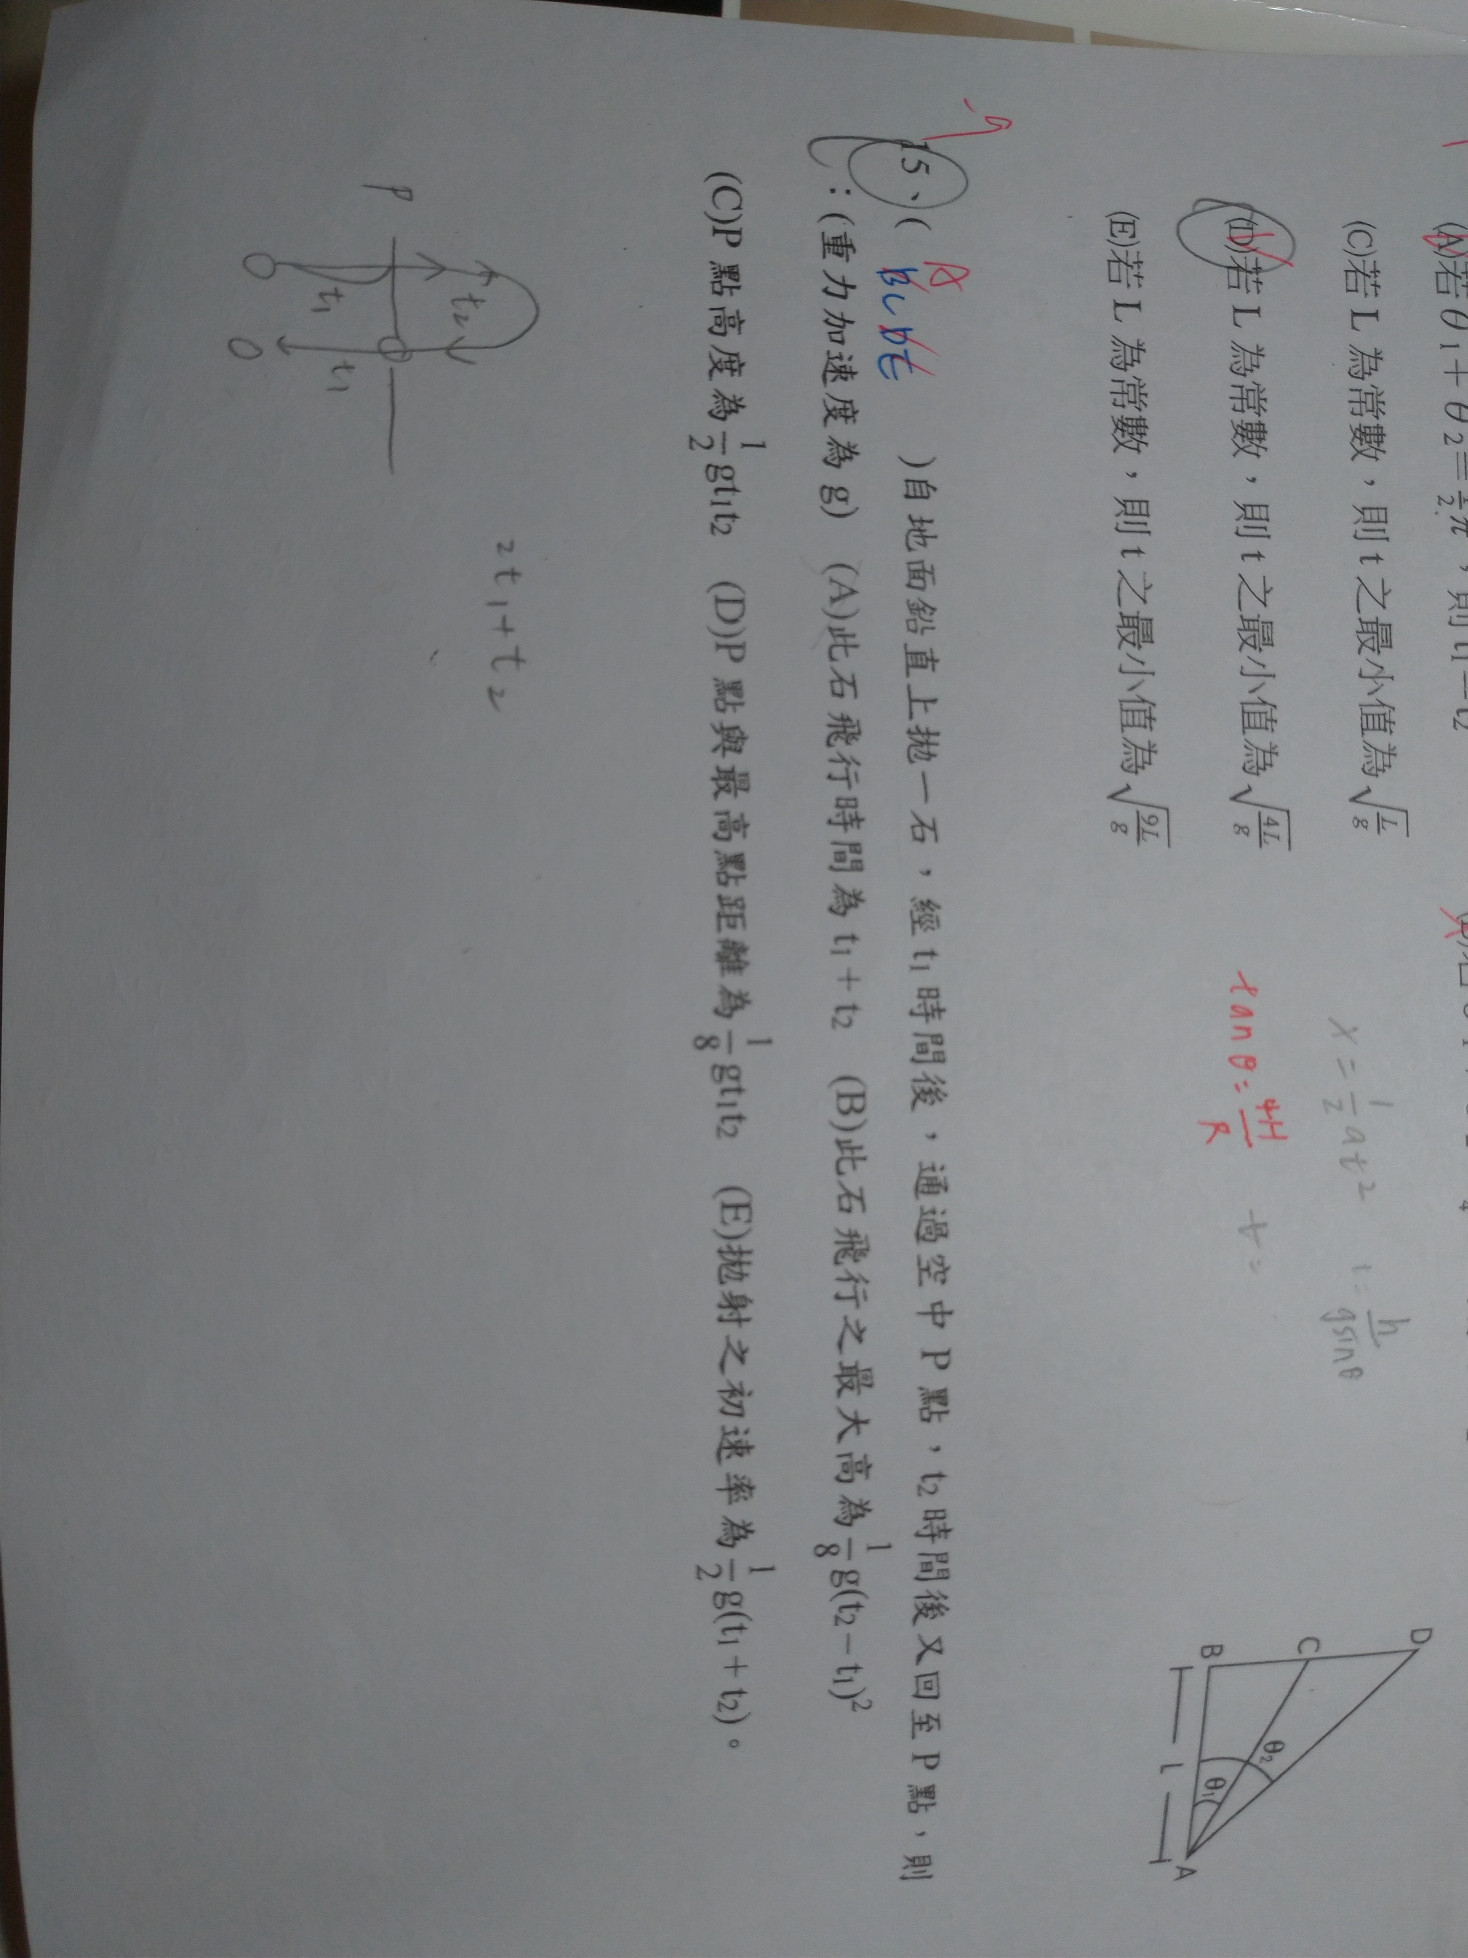 (A)若 θ₁ + θ₂ = ½π，則 t₁ = t₂
(C)若 L 為常數，則 t 之最小值為 √(L/g)
(D)若 L 為常數，則 t 之最小值為 √(4L/g)
(E)若 L 為常數，則 t 之最小值為 √(2L/g)
x = 1/2 at² t = h/gsinθ
tanθ = 4H/R t =
D
C
B
θ₂
θ₁
L
A
15、( A BCDE )自地面鉛直上拋一石，經 t₁ 時間後，通過空中 P 點，t₂ 時間後又回至 P 點，則
：(重力加速度為 g) (A)此石飛行時間為 t₁ + t₂ (B)此石飛行之最大高為 1/8 g(t₂ − t₁)²
(C)P 點高度為 1/2 gt₁t₂ (D)P 點與最高點距離為 1/8 gt₁t₂ (E)拋射之初速率為 1/2 g(t₁ + t₂)。
2t₁ + t₂
t₂
P
t₁
t₁